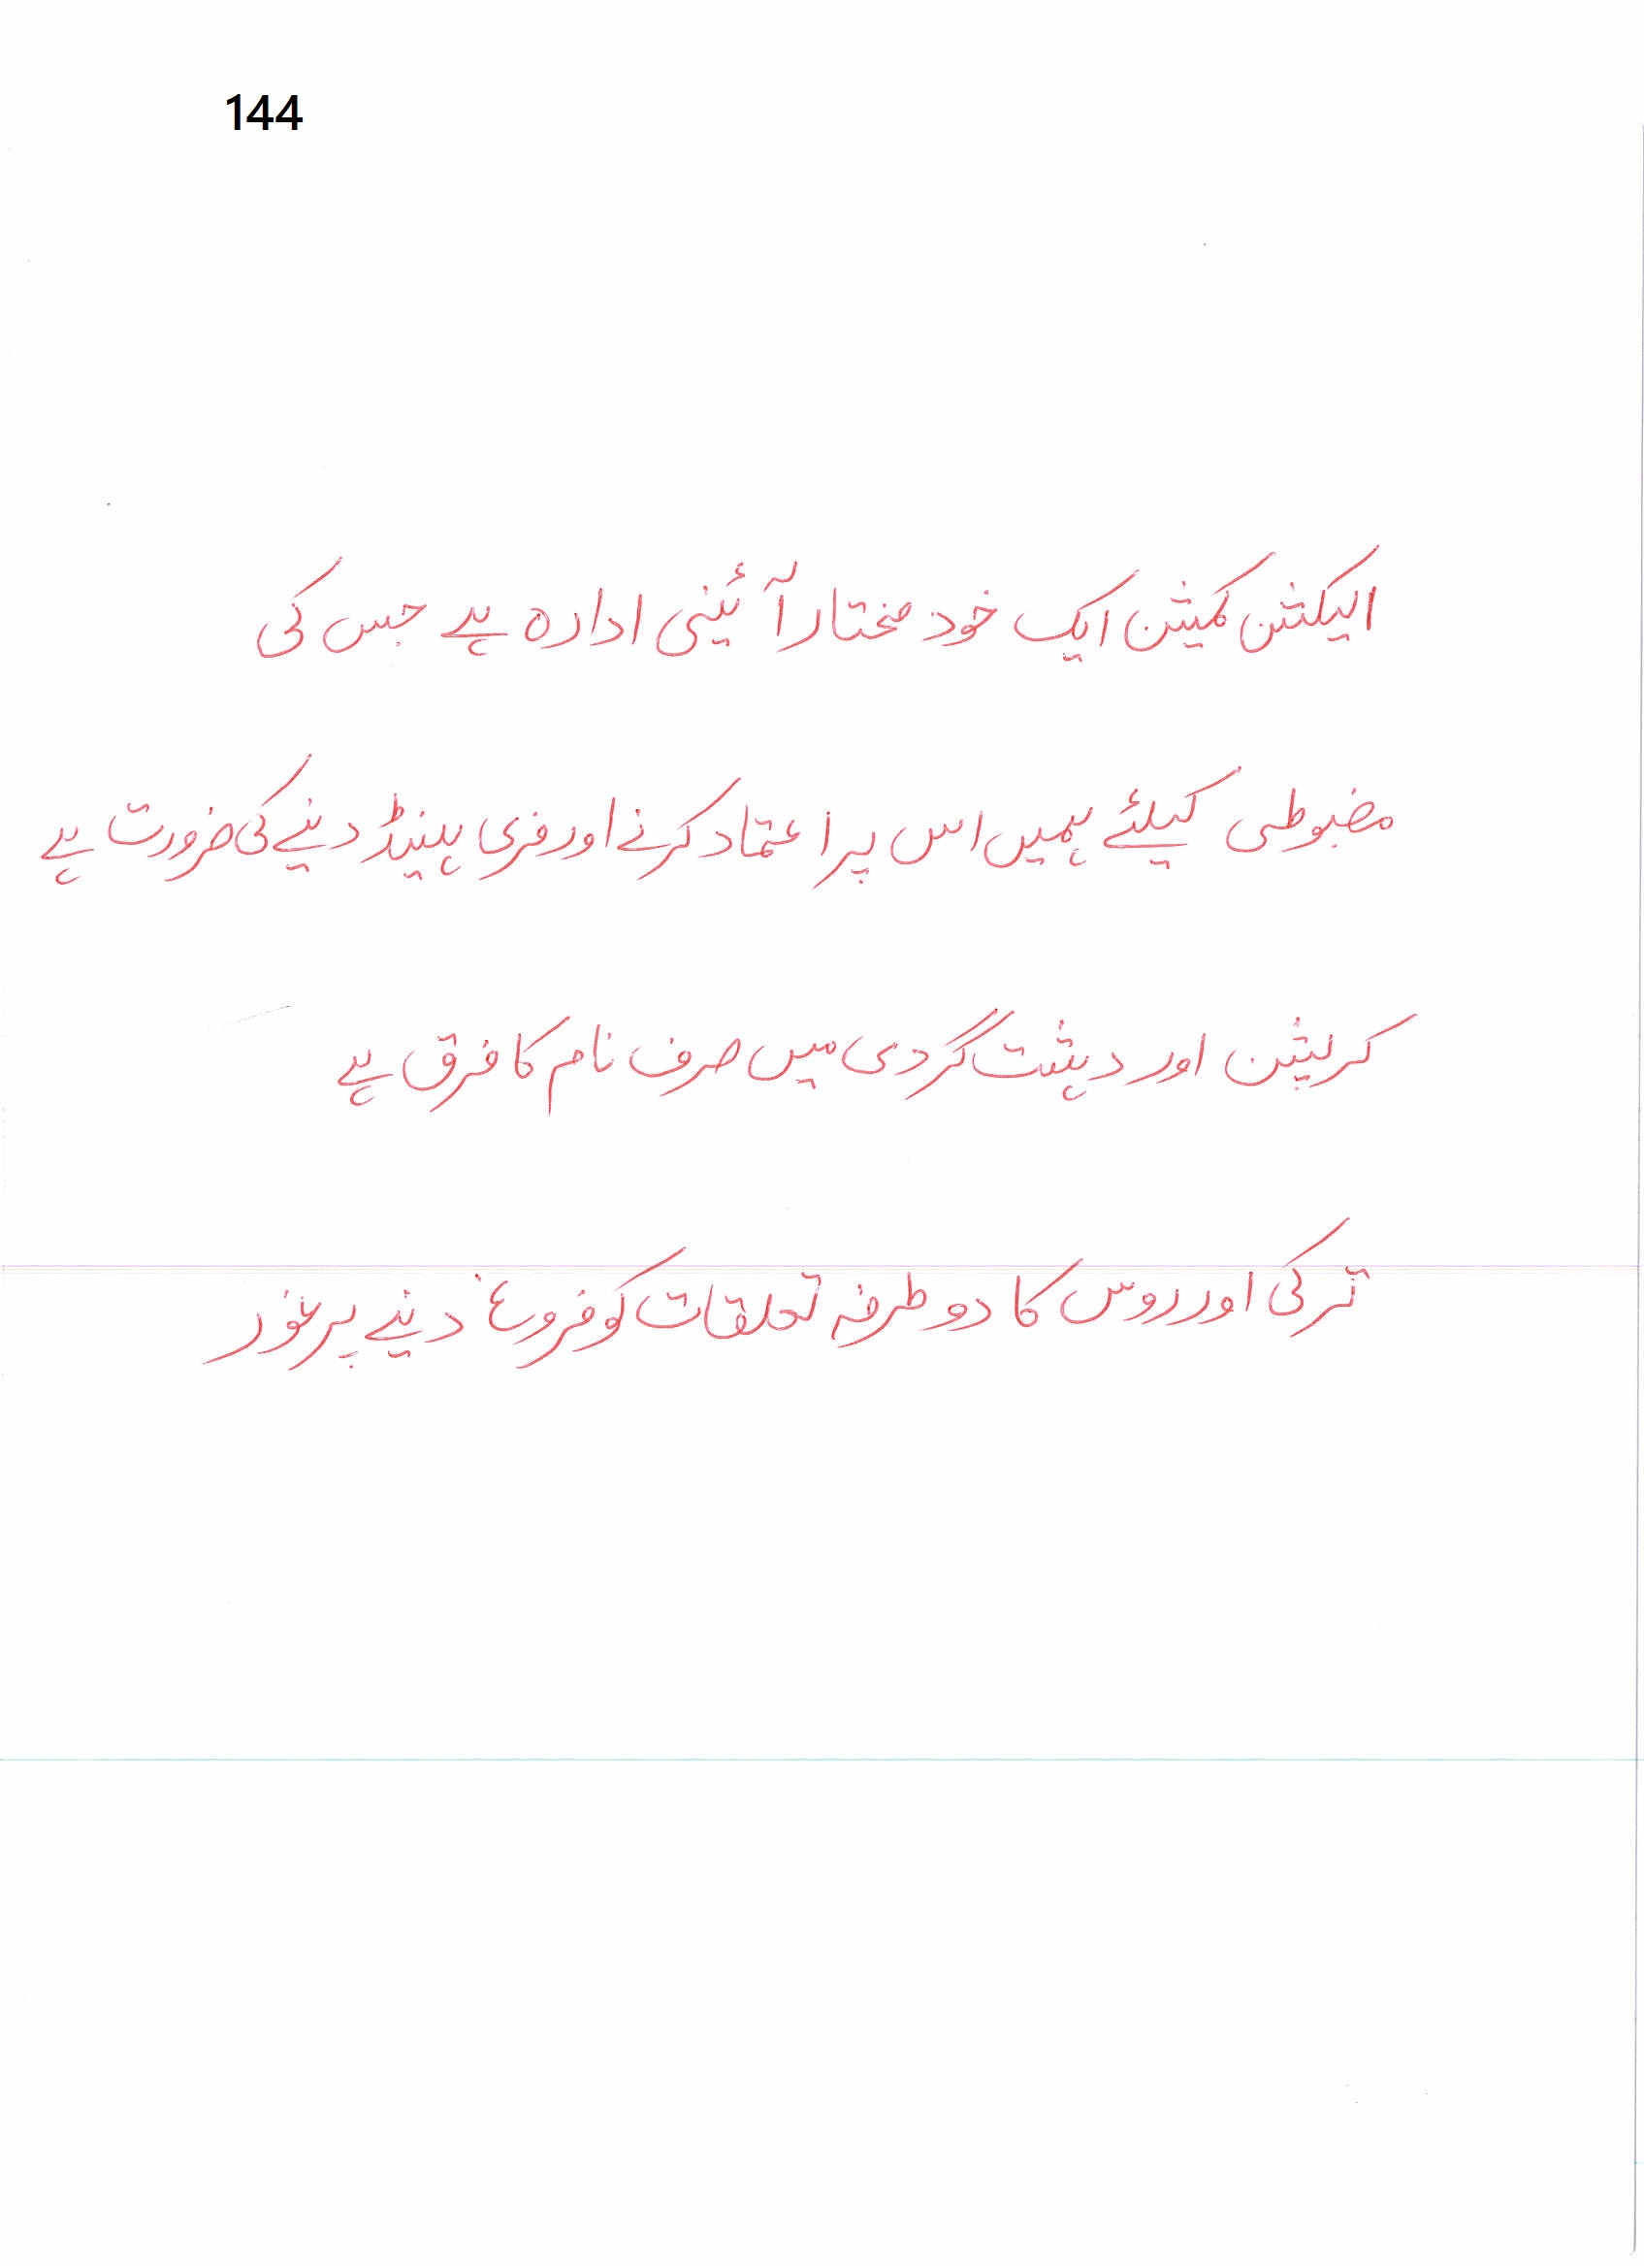 144
الیکشن کمیشن ایک خود مختار آئینی ادارہ ہے جس کی
مضبوطی کیلئے ہمیں اس پر اعتماد کرنے اور فری ہینڈ دینے کی ضرورت ہے
کرپشن اور دہشت گردی میں صرف نام کا فرق ہے
ترکی اور روس کا دو طرفہ تعلقات کو فروغ دینے پر غور